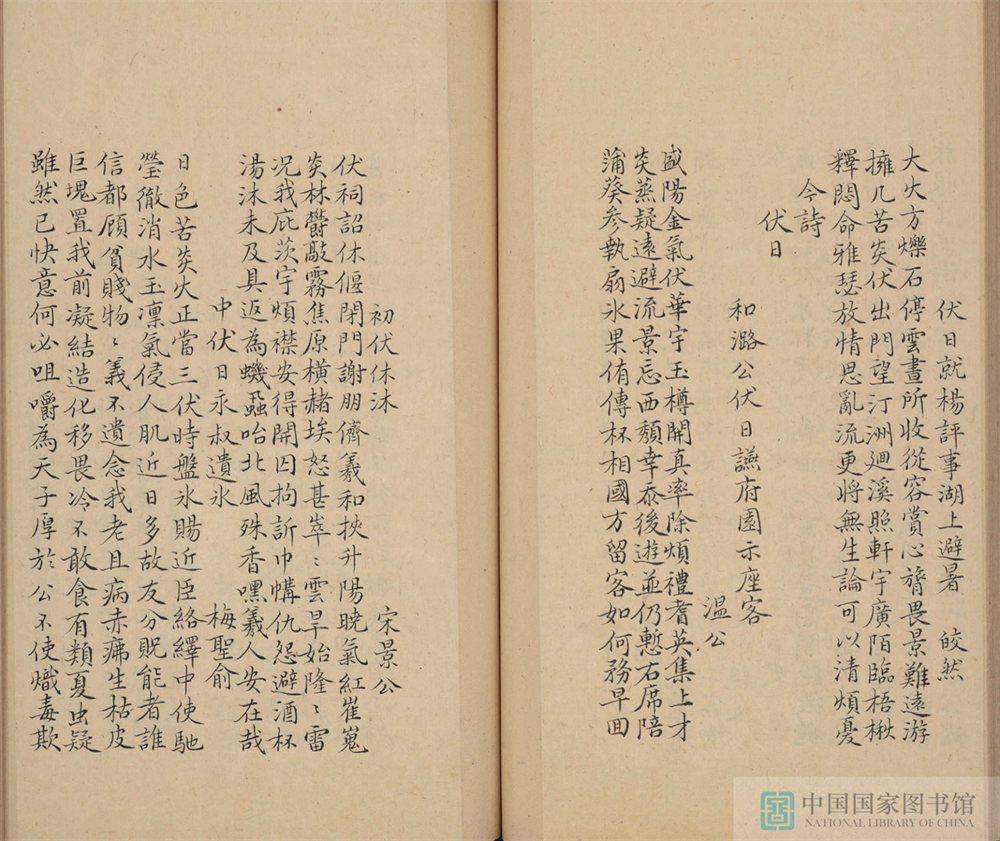 伏日就楊評事湖上避暑　皎然
大火方爍石停雲晝所收從容賞心獨畏景難遠游
擁几苦炎伏出門望汀洲廻溪照軒宇廣陌臨梧楸
釋悶命雅瑟放情思亂流更將無生論可以清煩憂
今詩
伏日
和潞公伏日讌府園示座客
溫公
盛陽金氣伏華宇玉樽開真率除煩禮耆英集上才
炎蒸疑遠避流景忘西頹幸忝後遊並仍慙右席陪
蒲葵參執扇氷果侑傳杯相國方留客如何務早回
初伏休沐　宋景公
伏祠詔休偃閉門謝朋儕羲和挾升陽曉氣紅崔嵬
炎林欝敲霧焦原橫赭埃怒甚萃〻雲旱始隆〻雷
况我庇茨宇煩襟安得開囚拘訢巾幬仇怨避酒杯
湯沐未及具返為蟣蝨咍北風殊香嘿羲人安在哉
中伏日永叔遺氷　梅聖俞
日色苦炎火正當三伏時盤氷賜近臣絡繹中使馳
瑩徹消水玉凛氣侵人肌近日多故友分貺能者誰
信都顧貧賤物〻義不遺念我老且病赤疿生枯皮
巨塊置我前凝結造化移畏冷不敢食有類夏虫疑
雖然已快意何必咀嚼為天子厚於公不使熾毒欺
中国国家图书馆
NATIONAL LIBRARY OF CHINA